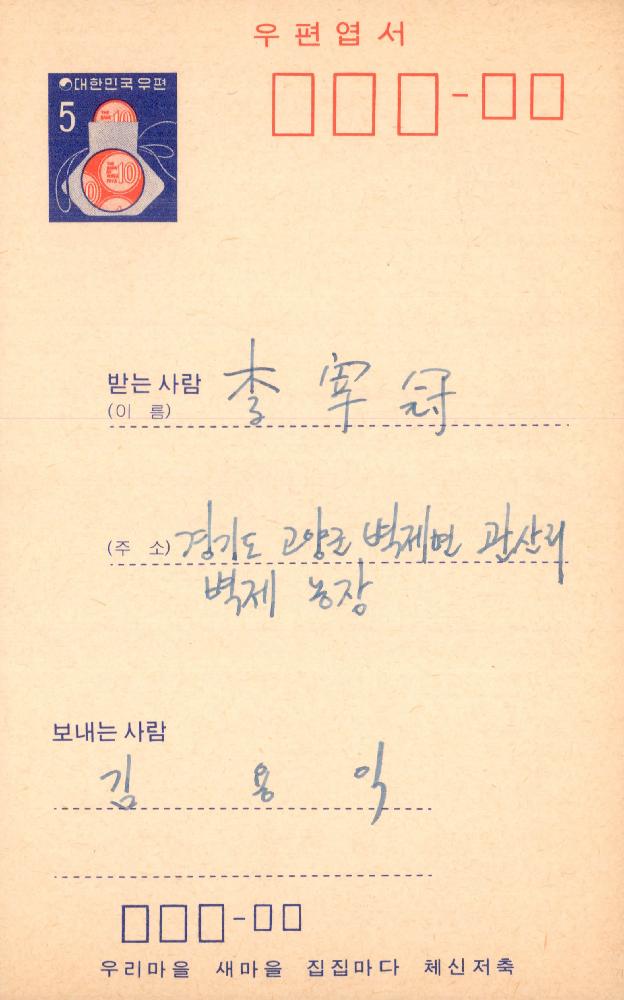 우편엽서
대한민국우편
5
THE BANK
10
THE BANK OF KOREA
10
받는 사람 李宰冠
(이 름)
(주 소) 경기도 고양군 벽제면 관산리
벽제 농장
보내는 사람
김 용 익
우리마을 새마을 집집마다 체신저축